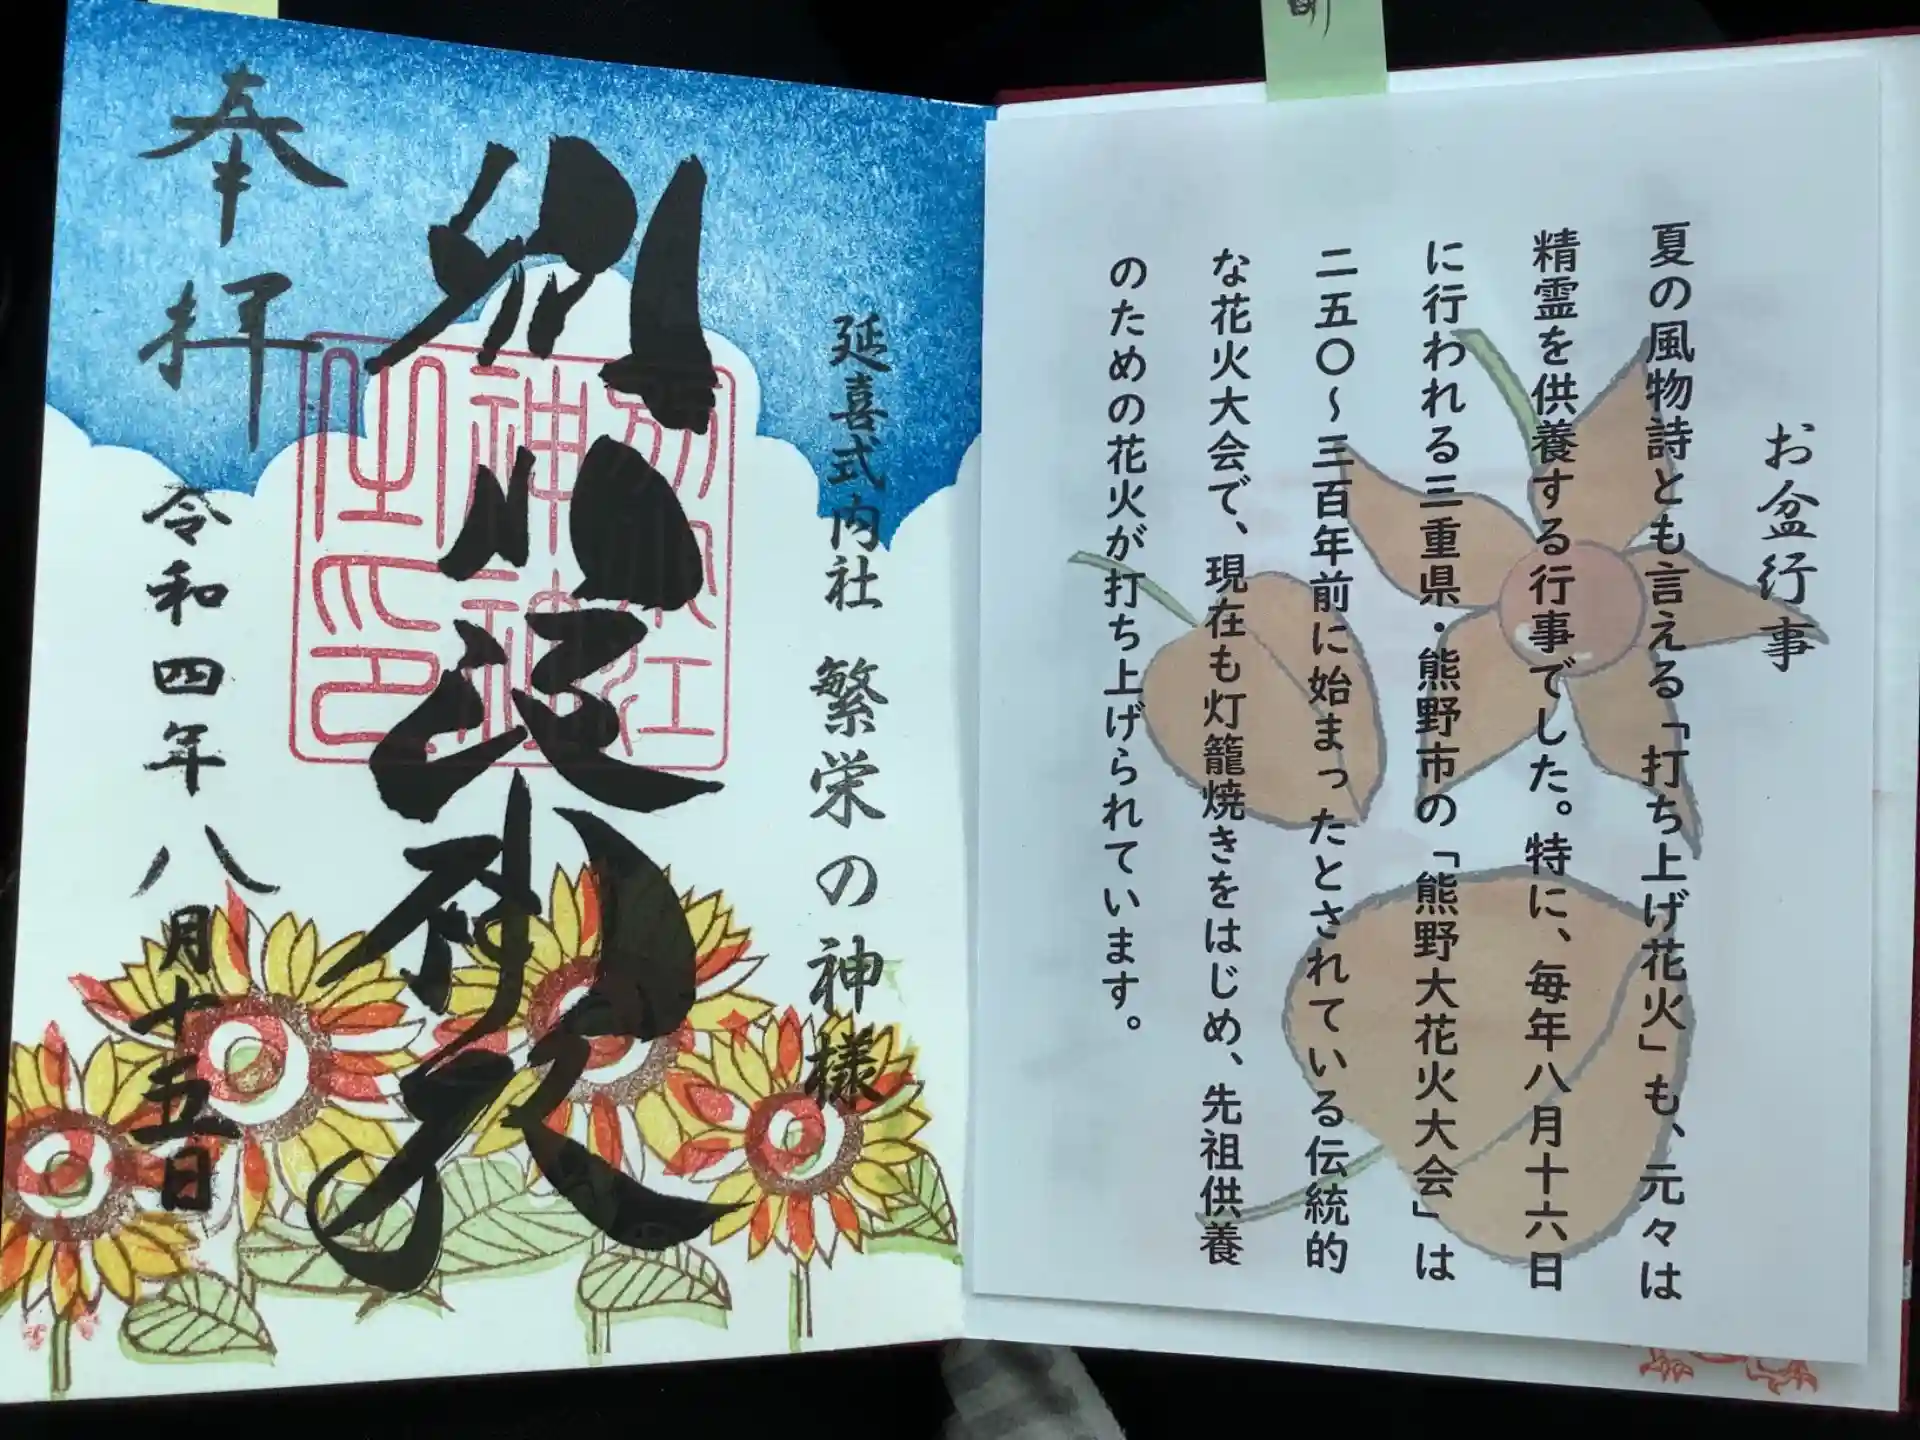 お盆行事
夏の風物詩とも言える「打ち上げ花火」も、元々は
精霊を供養する行事でした。特に、毎年八月十六日
に行われる三重県・熊野市の「熊野大花火大会」は
二五〇～三百年前に始まったとされている伝統的
な花火大会で、現在も灯籠焼きをはじめ、先祖供養
のための花火が打ち上げられています。
延喜式内社 繁栄の神様
別小江神社
別小江
神社
之印
奉拝
令和四年八月十五日